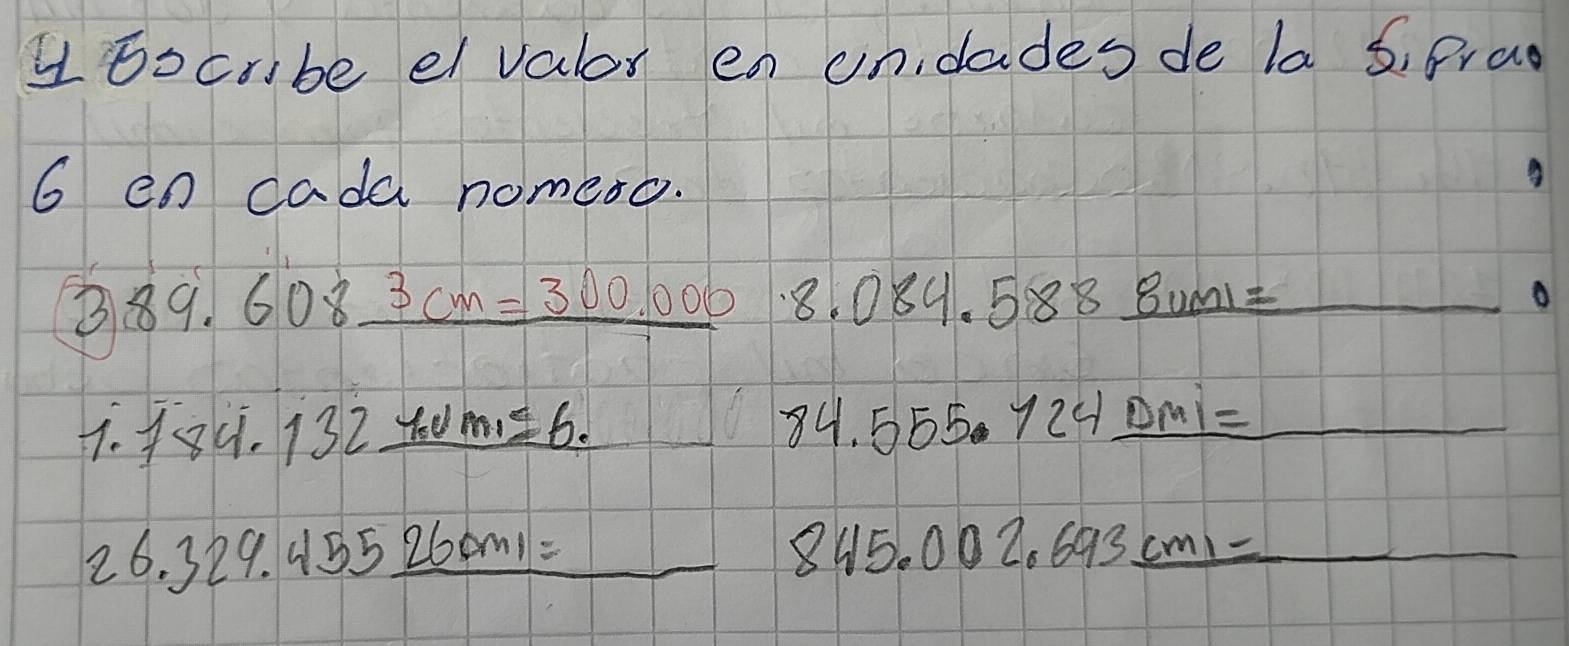 4 Escribe el valor en unidades de la Sifra
6 en cada nomero.
389.608 3cm=300.000 8.084.588 8umi=
1.784.132 1.umi=6. 84.555.124 Dmi=
26.329.455 26Dmi= 845.002.693 cmi=